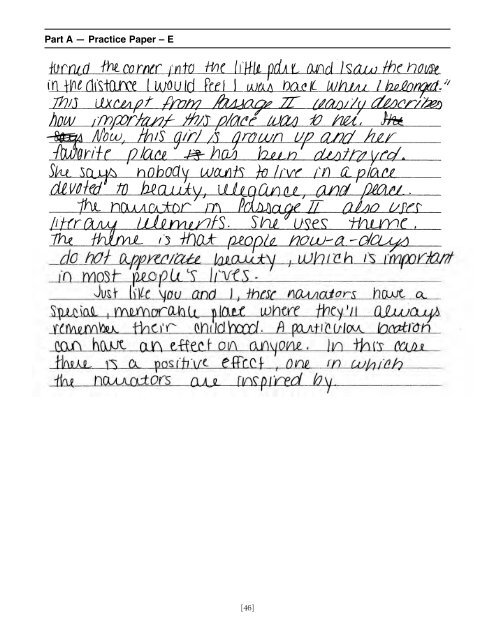 Part A — Practice Paper – E
turned the corner into the little park and I saw the house
in the distance I would feel I was back where I belonged."
This excerpt from Passage II easily describes
how important this place was to her. The
Says Now, this girl is grown up and her
favorite place is has been destroyed.
She says nobody wants to live in a place
devoted to beauty, elegance, and peace.
The narrator in Passage II also uses
literary elements. She uses theme.
The theme is that people now-a-days
do not appreciate beauty, which is important
in most people's lives.
Just like you and I, these narrators have a
special, memorable place where they'll always
remember their childhood. A particular location
can have an effect on anyone. In this case
there is a positive effect, one in which
the narrators are inspired by.
[46]